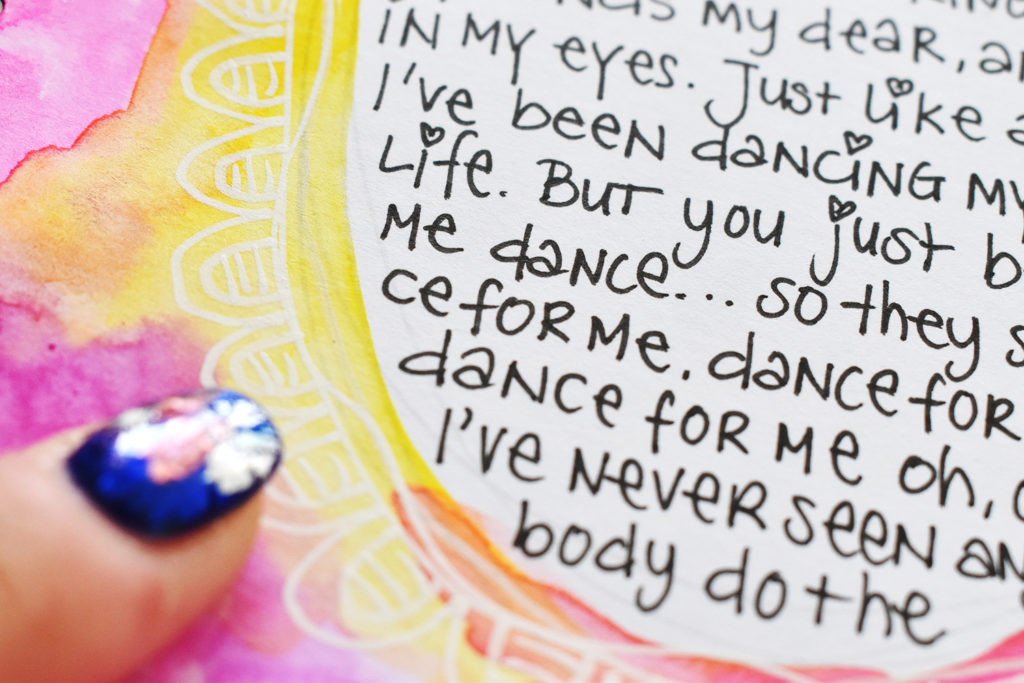 my dear,
IN MY eyes. Just like
I've been dancing my
Life. But you just
Me dance... so they
ce for me, dance for
dance for me oh,
I've never seen
body do the